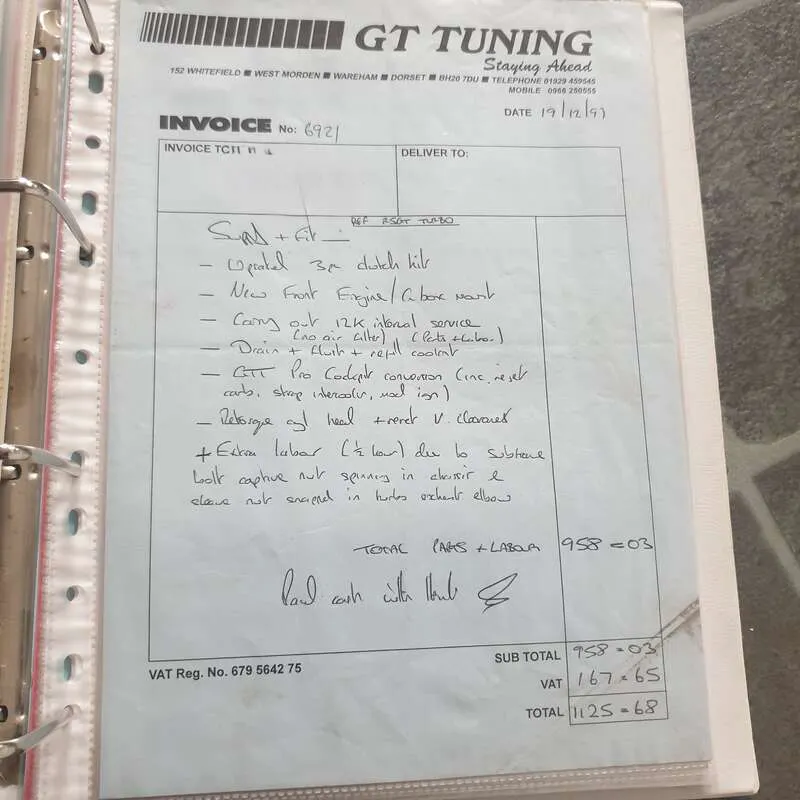 GT TUNING
Staying Ahead
152 WHITEFIELD ■ WEST MORDEN ■ WAREHAM ■ DORSET ■ BH20 7DU ■ TELEPHONE 01929 459545
MOBILE 0966 250555
DATE 19/12/97
INVOICE No: 6921
INVOICE TO:
DELIVER TO:
REF RSGT TURBO
Supply + Fit —
— Uprated 3pc clutch kit
— New Front Engine/Gbox mount
— Carry out 12K interval service
(no air filter) (Parts + Labour)
— Drain + flush + refill coolant
— GTT Pro Cockpit conversion (inc. reset
carb, strap intercooler, mod ign)
— Retorque cyl head + reset V. clearances
+ Extra labour (½ hour) due to subframe
bolt captive nut spinning in chassis &
sleeve nut snapped in turbo exhaust elbow
TOTAL PARTS + LABOUR 958=03
Paid cash with thanks
VAT Reg. No. 679 5642 75
SUB TOTAL 958=03
VAT 167=65
TOTAL 1125=68